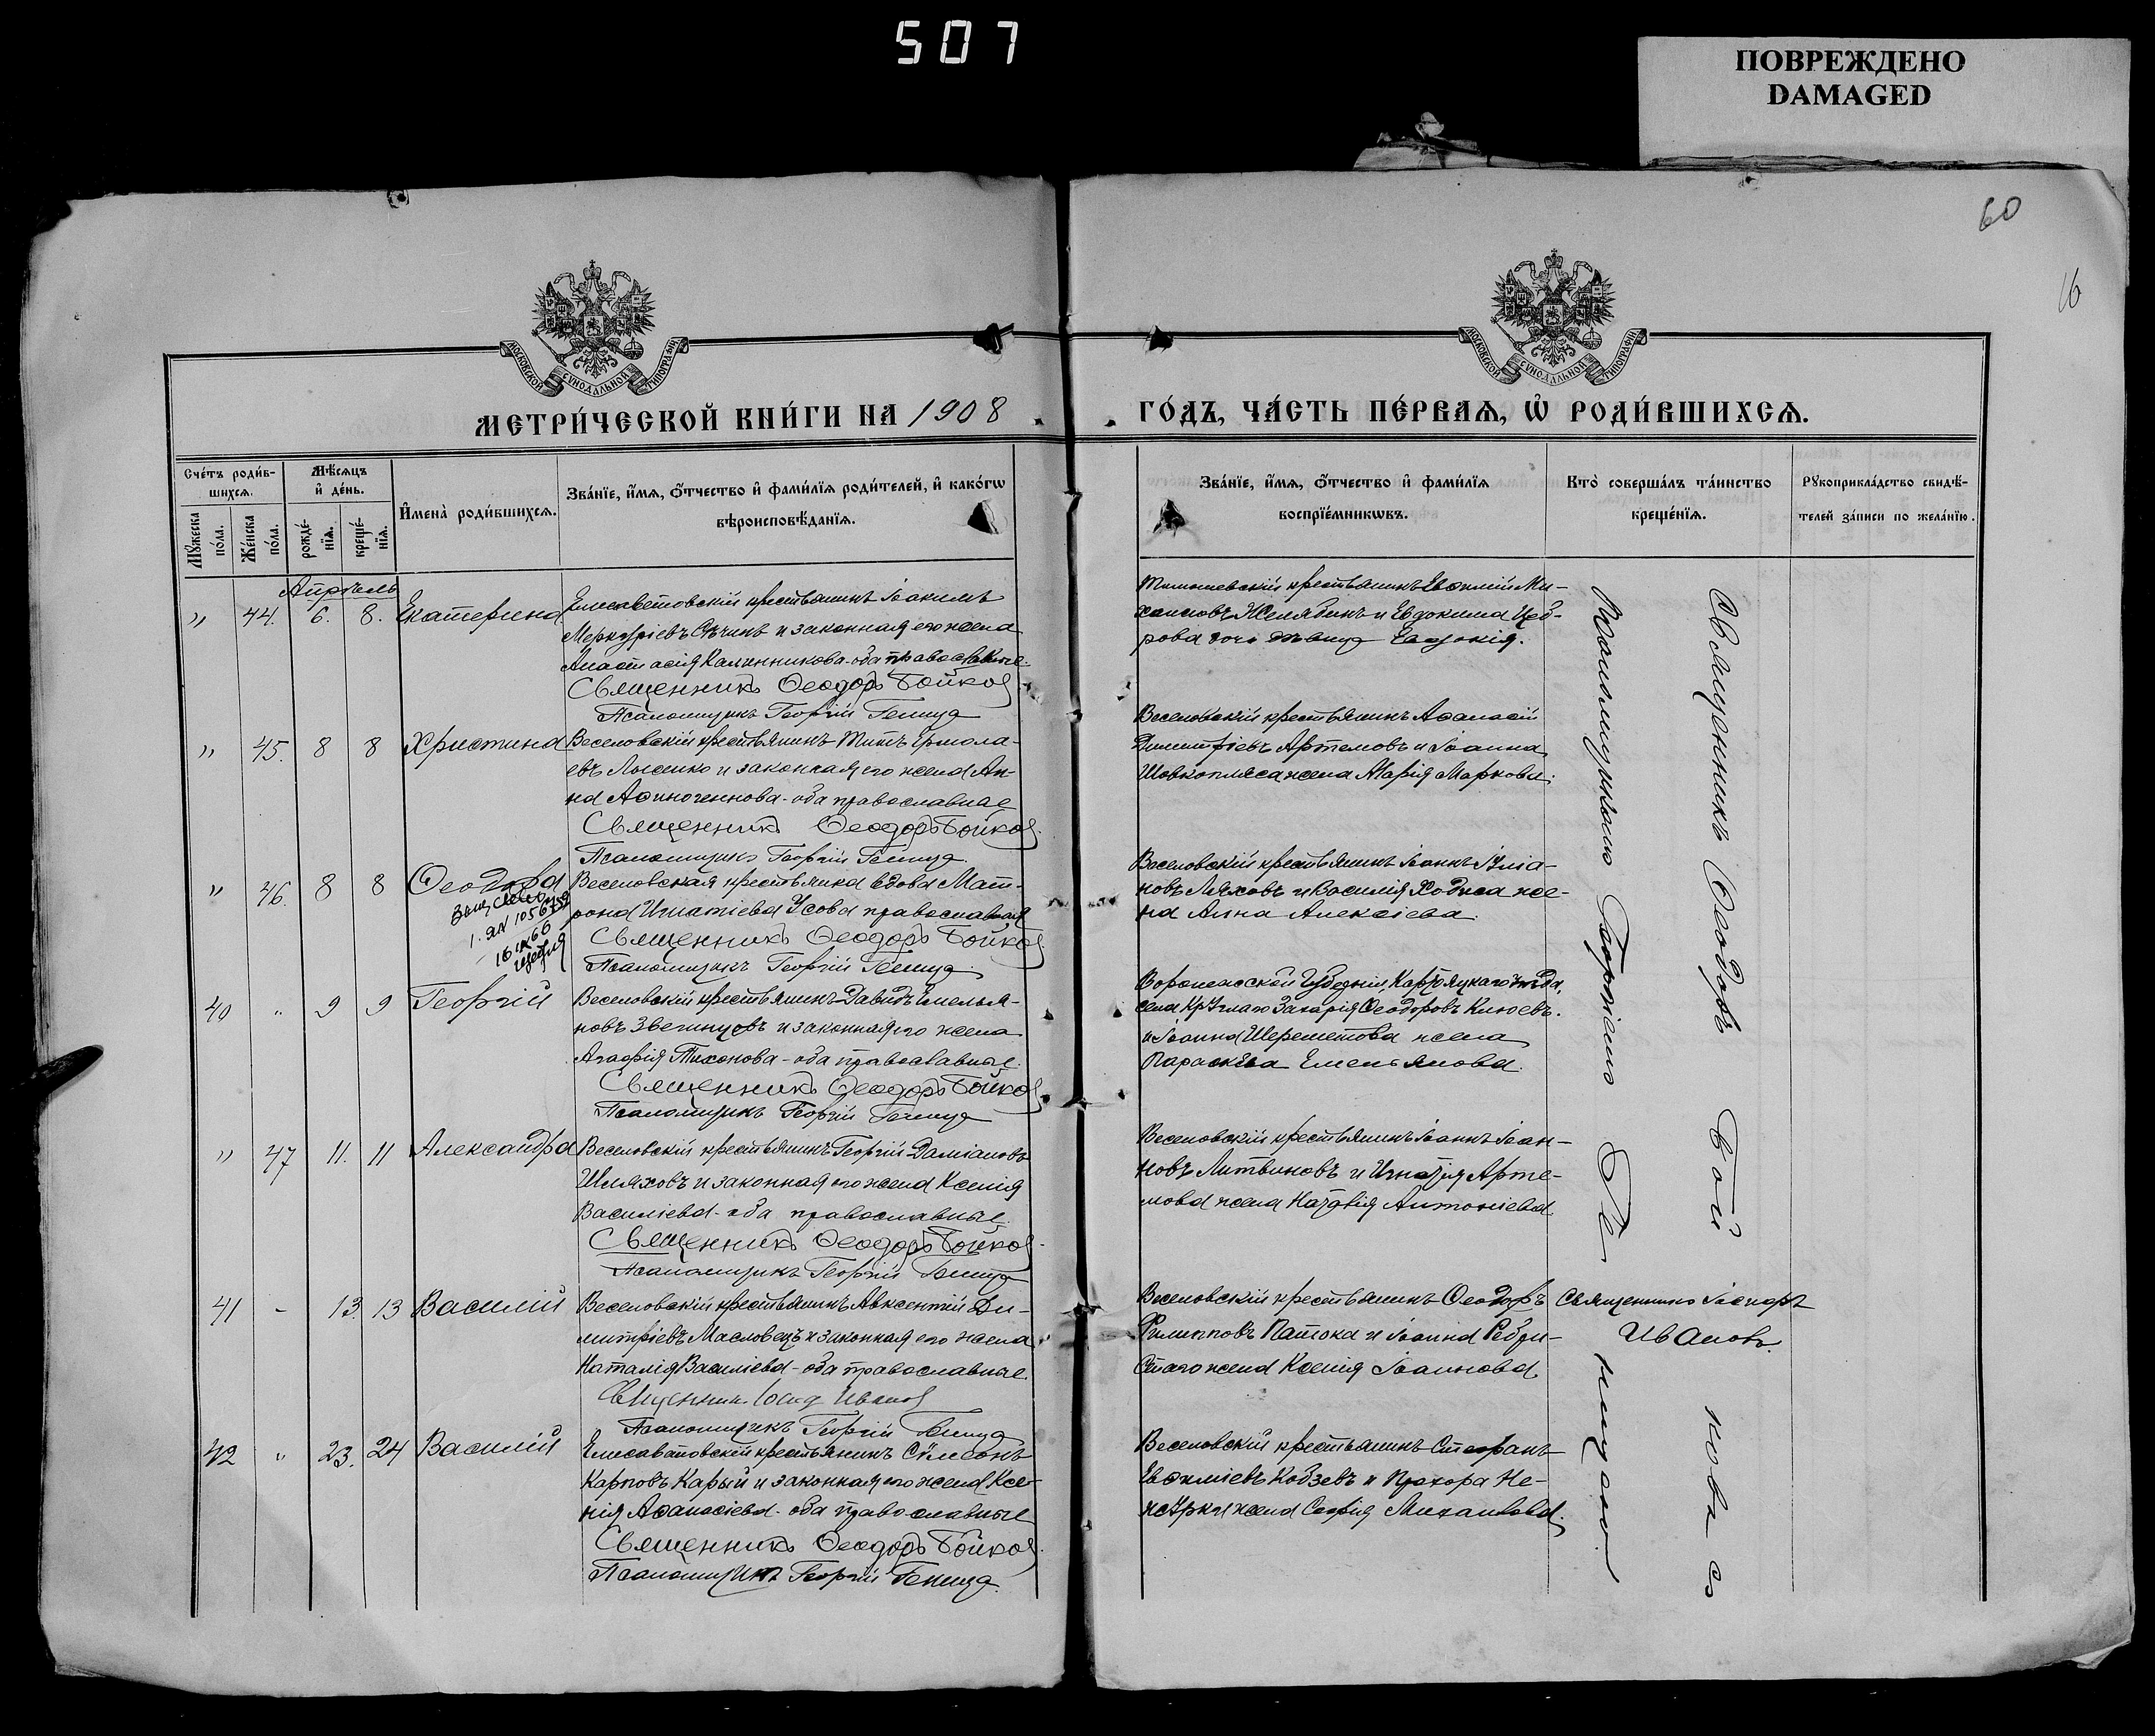 507
ПОВРЕЖДЕНО
DAMAGED
60
16
МОСКОВСКОЙ СѴНОДАЛЬНОЙ ТИПОГРАФІИ
МОСКОВСКОЙ СѴНОДАЛЬНОЙ ТИПОГРАФІИ
МЕТРИ́ЧЕСКОЙ КНИ́ГИ НА 1908
ГО́ДЪ, ЧА́СТЬ ПЕ́РВАѦ, Ѡ҆ РОДИ́ВШИХСѦ.
Сче́тъ роди́в-
шихсѧ.
Мꙋ́жеска по́ла.
Же́нска по́ла.
Мѣ́сѧцъ
и҆ де́нь.
рожде́-
нїѧ.
креще́-
нїѧ.
И҆мена̀ роди́вшихсѧ.
Зва́нїе, и҆́мѧ, ѻ҆́тчество и҆ фами́лїѧ роди́телей, и҆ како́гѡ
вѣроисповѣ́данїѧ.
Зва́нїе, и҆́мѧ, ѻ҆́тчество и҆ фами́лїѧ
воспрїе́мникѡвъ.
Кто̀ соверша́лъ та́инство
креще́нїѧ.
Рꙋкоприкла́дство свидѣ́-
телей за́писи по жела́нїю.
Апрѣль
" 44. 6. 8. Екатерина
Елисаветовскій крестьянинъ Іоакимъ
Меркуріевъ Сѣчинъ и законная его жена
Анастасія Калинникова - оба православные.
Священникъ Ѳеодоръ Бойков
Псаломщикъ Георгій
крестьянинъ Евѳимій Ми-
хаиловъ Желябинъ и Евдокима
рова дочь дѣвица Евдокія.
" 45. 8 8 Христина
Веселовскій крестьянинъ Титъ Ермола-
евъ Лысенко и законная его жена Ан-
на Аѳиногенова - оба православные
Священникъ Ѳеодоръ Бойков
Псаломщикъ Георгій
Веселовскій крестьянинъ Аѳанасій
Димитріевъ Артемовъ и Іоанна
Шовкопляса жена Марія Маркова.
" 46. 8 8 Ѳеодора
1. ЯN 1056759
16 IX 60
Веселовская крестьянка вдова Мат-
рона Игнатіева Усова православная
Священникъ Ѳеодоръ Бойков
Псаломщикъ Георгій
Веселовскій крестьянинъ Іоаннъ Іулiа-
новъ Ляховъ и Василія Ходуса же-
на Анна Алексіева.
40 " 9 9 Георгій
Веселовскій крестьянинъ Давидъ Емелья-
новъ Звегинцовъ и законная его жена
Агафія Тихонова - оба православные.
Священникъ Ѳеодоръ Бойков
Псаломщикъ Георгій
Воронежской губерніи, уѣзда,
села Круглаго Захарія Ѳеодоровъ Клюевъ.
и Іоанна Шереметова жена
Параскева Емельянова.
" 47 11. 11 Александра
Веселовскій крестьянинъ Георгій Даміановъ
Шляховъ и законная его жена Ксенія
Василіева - оба православные.
Священникъ Ѳеодоръ Бойков
Псаломщикъ Георгій
Веселовскій крестьянинъ Іоаннъ Іоан-
новъ Литвиновъ и Игнатія Арте-
мова жена Наталія Антоніева
41 - 13. 13 Василій
Веселовскій крестьянинъ Авксентій Ди-
митріевъ Масловецъ и законная его жена
Наталія Василіева - оба православные.
Священник Іосиф Иванов
Псаломщикъ Георгій
Веселовскій крестьянинъ Ѳеодоръ
Филипповъ Патока и Іоанна Ребри-
стаго жена Ксенія Іоаннова
Священникъ
Ивановъ.
42 " 23. 24 Василій
Елисаветовскій крестьянинъ Сѵмеонъ
Карповъ Карый и законная его жена Ксе-
нія Аѳанасіева - оба православные
Священникъ Ѳеодоръ Бойков
Псаломщикъ Георгій
Веселовскій крестьянинъ Стефанъ
Евѳиміевъ Кобзевъ и Прохора Не-
жена Софія Михаилова.
Священникъ Ѳеодоръ Бойковъ съ
Псаломщикомъ Георгіемъ